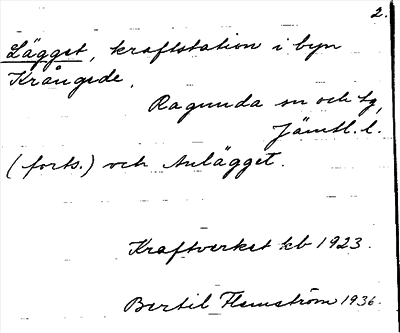 2.
Lägget, kraftstation i byn
Krångede.
Ragunda sn och tg,
Jämtl. l.
(forts.) och Anlägget.
Kraftverket kb 1923.
Bertil Flemström 1936.